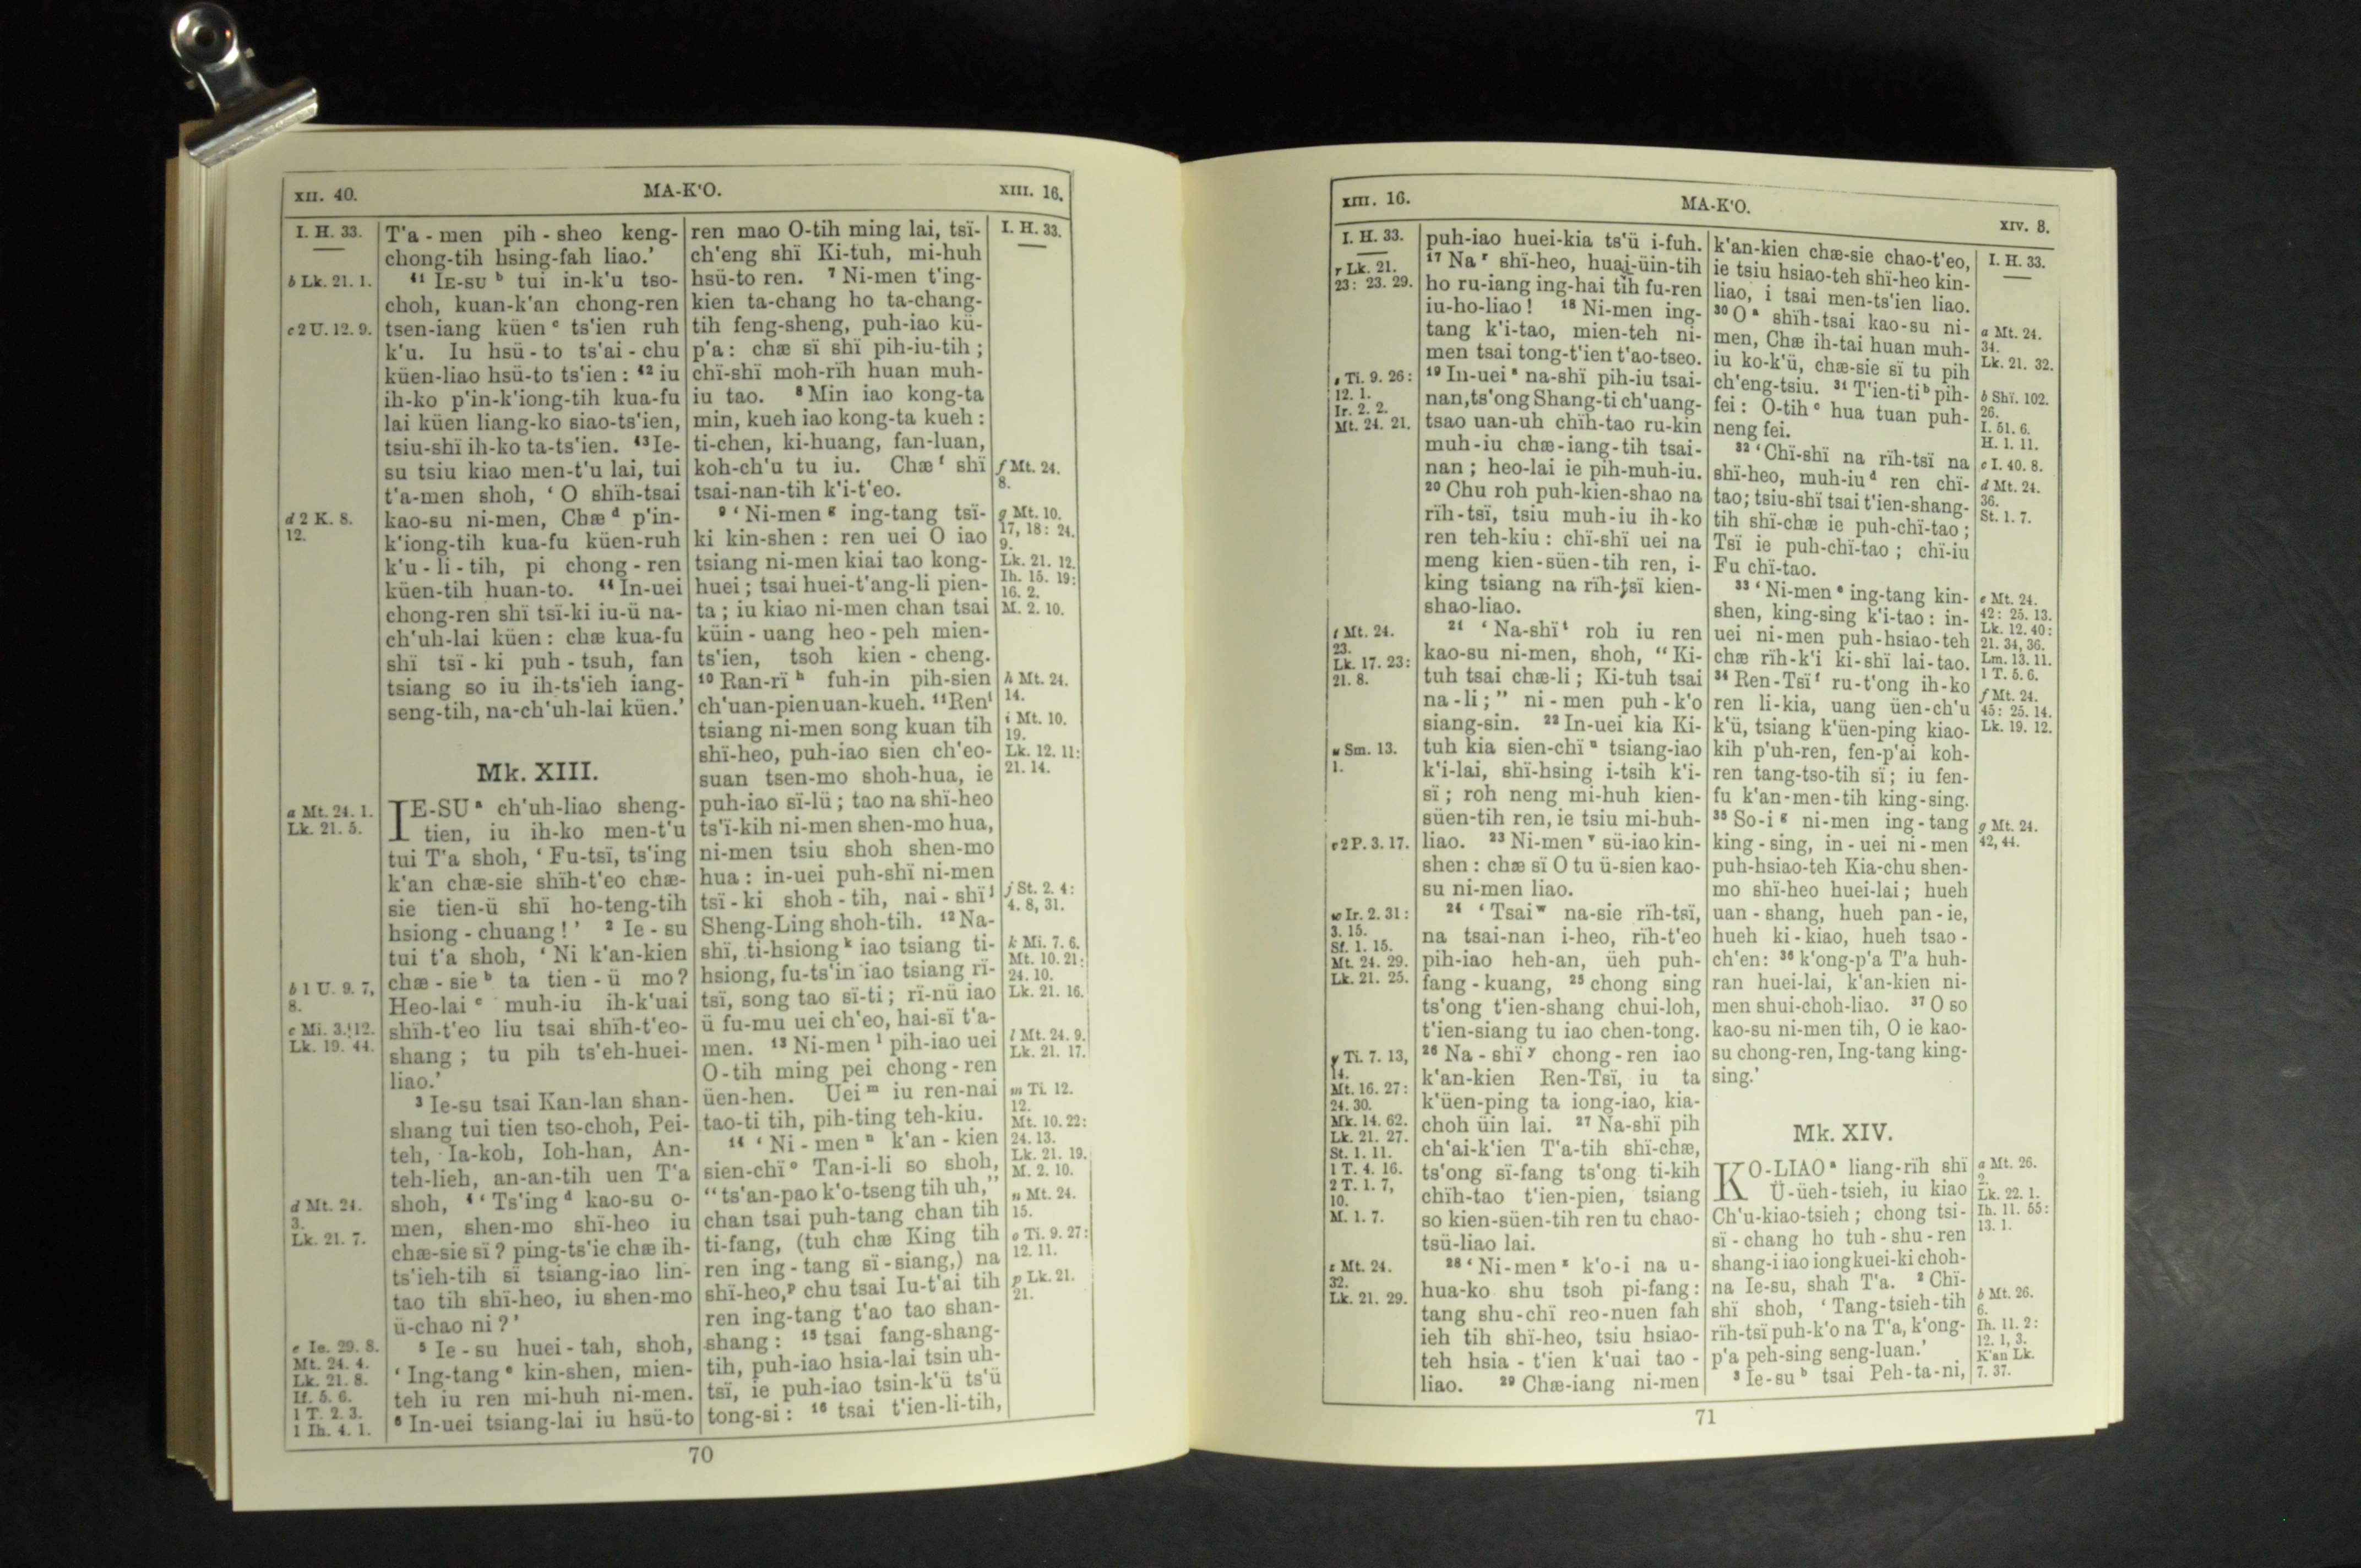 XII. 40.
MA-K'O.
XIII. 16.
I. H. 33.
b Lk. 21. 1.
c 2 U. 12. 9.
d 2 K. 8.
12.
a Mt. 24. 1.
Lk. 21. 5.
b 1 U. 9. 7,
8.
c Mi. 3. 12.
Lk. 19. 44.
d Mt. 24.
3.
Lk. 21. 7.
e Ie. 29. 8.
Mt. 24. 4.
Lk. 21. 8.
If. 5. 6.
1 T. 2. 3.
1 Ih. 4. 1.
T'a-men pih-sheo keng-
chong-tih hsing-fah liao.'
41 IE-SU b tui in-k'u tso-
choh, kuan-k'an chong-ren
tsen-iang küen c ts'ien ruh
k'u. Iu hsü-to ts'ai-chu
küen-liao hsü-to ts'ien: 42 iu
ih-ko p'in-k'iong-tih kua-fu
lai küen liang-ko siao-ts'ien,
tsiu-shï ih-ko ta-ts'ien. 43 Ie-
su tsiu kiao men-t'u lai, tui
t'a-men shoh, 'O shïh-tsai
kao-su ni-men, Chæ d p'in-
k'iong-tih kua-fu küen-ruh
k'u-li-tih, pi chong-ren
küen-tih huan-to. 44 In-uei
chong-ren shï tsï-ki iu-ü na-
ch'uh-lai küen: chæ kua-fu
shï tsï-ki puh-tsuh, fan
tsiang so iu ih-ts'ieh iang-
seng-tih, na-ch'uh-lai küen.'
Mk. XIII.
IE-SU a ch'uh-liao sheng-
tien, iu ih-ko men-t'u
tui T'a shoh, 'Fu-tsï, ts'ing
k'an chæ-sie shïh-t'eo chæ-
sie tien-ü shï ho-teng-tih
hsiong-chuang!' 2 Ie-su
tui t'a shoh, 'Ni k'an-kien
chæ-sie b ta tien-ü mo?
Heo-lai c muh-iu ih-k'uai
shïh-t'eo liu tsai shïh-t'eo-
shang; tu pih ts'eh-huei-
liao.'
3 Ie-su tsai Kan-lan shan-
shang tui tien tso-choh, Pei-
teh, Ia-koh, Ioh-han, An-
teh-lieh, an-an-tih uen T'a
shoh, 4 'Ts'ing d kao-su o-
men, shen-mo shï-heo iu
chæ-sie sï? ping-ts'ie chæ ih-
ts'ieh-tih sï tsiang-iao lin-
tao tih shï-heo, iu shen-mo
ü-chao ni?'
5 Ie-su huei-tah, shoh,
'Ing-tang e kin-shen, mien-
teh iu ren mi-huh ni-men.
6 In-uei tsiang-lai iu hsü-to
ren mao O-tih ming lai, tsï-
ch'eng shï Ki-tuh, mi-huh
hsü-to ren. 7 Ni-men t'ing-
kien ta-chang ho ta-chang-
tih feng-sheng, puh-iao kü-
p'a: chæ sï shï pih-iu-tih;
chï-shï moh-rïh huan muh-
iu tao. 8 Min iao kong-ta
min, kueh iao kong-ta kueh:
ti-chen, ki-huang, fan-luan,
koh-ch'u tu iu. Chæ f shï
tsai-nan-tih k'i-t'eo.
9 'Ni-men g ing-tang tsï-
ki kin-shen: ren uei O iao
tsiang ni-men kiai tao kong-
huei; tsai huei-t'ang-li pien-
ta; iu kiao ni-men chan tsai
küin-uang heo-peh mien-
ts'ien, tsoh kien-cheng.
10 Ran-rï h fuh-in pih-sien
ch'uan-pien uan-kueh. 11 Ren i
tsiang ni-men song kuan tih
shï-heo, puh-iao sien ch'eo-
suan tsen-mo shoh-hua, ie
puh-iao sï-lü; tao na shï-heo
ts'ï-kih ni-men shen-mo hua,
ni-men tsiu shoh shen-mo
hua: in-uei puh-shï ni-men
tsï-ki shoh-tih, nai-shï j
Sheng-Ling shoh-tih. 12 Na-
shï, ti-hsiong k iao tsiang ti-
hsiong, fu-ts'in iao tsiang rï-
tsï, song tao sï-ti; rï-nü iao
ü fu-mu uei ch'eo, hai-sï t'a-
men. 13 Ni-men l pih-iao uei
O-tih ming pei chong-ren
üen-hen. Uei m iu ren-nai
tao-ti tih, pih-ting teh-kiu.
14 'Ni-men n k'an-kien
sien-chï o Tan-i-li so shoh,
"ts'an-pao k'o-tseng tih uh,"
chan tsai puh-tang chan tih
ti-fang, (tuh chæ King tih
ren ing-tang sï-siang,) na
shï-heo, p chu tsai Iu-t'ai tih
ren ing-tang t'ao tao shan-
shang: 15 tsai fang-shang-
tih, puh-iao hsia-lai tsin uh-
tsï, ie puh-iao tsin-k'ü ts'ü
tong-si: 16 tsai t'ien-li-tih,
I. H. 33.
f Mt. 24.
8.
g Mt. 10.
17, 18: 24.
9.
Lk. 21. 12.
Ih. 15. 19:
16. 2.
M. 2. 10.
h Mt. 24.
14.
i Mt. 10.
19.
Lk. 12. 11:
21. 14.
j St. 2. 4:
4. 8, 31.
k Mi. 7. 6.
Mt. 10. 21:
24. 10.
Lk. 21. 16.
l Mt. 24. 9.
Lk. 21. 17.
m Ti. 12.
12.
Mt. 10. 22:
24. 13.
Lk. 21. 19.
M. 2. 10.
n Mt. 24.
15.
o Ti. 9. 27:
12. 11.
p Lk. 21.
21.
70
XIII. 16.
MA-K'O.
XIV. 8.
I. H. 33.
r Lk. 21.
23: 23. 29.
s Ti. 9. 26:
12. 1.
Ir. 2. 2.
Mt. 24. 21.
t Mt. 24.
23.
Lk. 17. 23:
21. 8.
u Sm. 13.
1.
v 2 P. 3. 17.
w Ir. 2. 31:
3. 15.
Sf. 1. 15.
Mt. 24. 29.
Lk. 21. 25.
y Ti. 7. 13,
14.
Mt. 16. 27:
24. 30.
Mk. 14. 62.
Lk. 21. 27.
St. 1. 11.
1 T. 4. 16.
2 T. 1. 7,
10.
M. 1. 7.
z Mt. 24.
32.
Lk. 21. 29.
puh-iao huei-kia ts'ü i-fuh.
17 Na r shï-heo, huai-üin-tih
ho ru-iang ing-hai tih fu-ren
iu-ho-liao! 18 Ni-men ing-
tang k'i-tao, mien-teh ni-
men tsai tong-t'ien t'ao-tseo.
19 In-uei s na-shï pih-iu tsai-
nan, ts'ong Shang-ti ch'uang-
tsao uan-uh chïh-tao ru-kin
muh-iu chæ-iang-tih tsai-
nan; heo-lai ie pih-muh-iu.
20 Chu roh puh-kien-shao na
rïh-tsï, tsiu muh-iu ih-ko
ren teh-kiu: chï-shï uei na
meng kien-süen-tih ren, i-
king tsiang na rïh-tsï kien-
shao-liao.
21 'Na-shï t roh iu ren
kao-su ni-men, shoh, "Ki-
tuh tsai chæ-li; Ki-tuh tsai
na-li;" ni-men puh-k'o
siang-sin. 22 In-uei kia Ki-
tuh kia sien-chï u tsiang-iao
k'i-lai, shï-hsing i-tsih k'i-
sï; roh neng mi-huh kien-
süen-tih ren, ie tsiu mi-huh-
liao. 23 Ni-men v sü-iao kin-
shen: chæ sï O tu ü-sien kao-
su ni-men liao.
24 'Tsai w na-sie rïh-tsï,
na tsai-nan i-heo, rïh-t'eo
pih-iao heh-an, üeh puh-
fang-kuang, 25 chong sing
ts'ong t'ien-shang chui-loh,
t'ien-siang tu iao chen-tong.
26 Na-shï y chong-ren iao
k'an-kien Ren-Tsï, iu ta
k'üen-ping ta iong-iao, kia-
choh üin lai. 27 Na-shï pih
ch'ai-k'ien T'a-tih shï-chæ,
ts'ong sï-fang ts'ong ti-kih
chïh-tao t'ien-pien, tsiang
so kien-süen-tih ren tu chao-
tsü-liao lai.
28 'Ni-men z k'o-i na u-
hua-ko shu tsoh pi-fang:
tang shu-chï reo-nuen fah
ieh tih shï-heo, tsiu hsiao-
teh hsia-t'ien k'uai tao-
liao. 29 Chæ-iang ni-men
k'an-kien chæ-sie chao-t'eo,
ie tsiu hsiao-teh shï-heo kin-
liao, i tsai men-ts'ien liao.
30 O a shïh-tsai kao-su ni-
men, Chæ ih-tai huan muh-
iu ko-k'ü, chæ-sie sï tu pih
ch'eng-tsiu. 31 T'ien-ti b pih-
fei: O-tih c hua tuan puh-
neng fei.
32 'Chï-shï na rïh-tsï na
shï-heo, muh-iu d ren chï-
tao; tsiu-shï tsai t'ien-shang-
tih shï-chæ ie puh-chï-tao;
Tsï ie puh-chï-tao; chï-iu
Fu chï-tao.
33 'Ni-men e ing-tang kin-
shen, king-sing k'i-tao: in-
uei ni-men puh-hsiao-teh
chæ rïh-k'i ki-shï lai-tao.
34 Ren-Tsï f ru-t'ong ih-ko
ren li-kia, uang üen-ch'u
k'ü, tsiang k'üen-ping kiao-
kih p'uh-ren, fen-p'ai koh-
ren tang-tso-tih sï; iu fen-
fu k'an-men-tih king-sing.
35 So-i g ni-men ing-tang
king-sing, in-uei ni-men
puh-hsiao-teh Kia-chu shen-
mo shï-heo huei-lai; hueh
uan-shang, hueh pan-ie,
hueh ki-kiao, hueh tsao-
ch'en: 36 k'ong-p'a T'a huh-
ran huei-lai, k'an-kien ni-
men shui-choh-liao. 37 O so
kao-su ni-men tih, O ie kao-
su chong-ren, Ing-tang king-
sing.'
Mk. XIV.
KO-LIAO a liang-rïh shï
Ü-üeh-tsieh, iu kiao
Ch'u-kiao-tsieh; chong tsi-
sï-chang ho tuh-shu-ren
shang-i iao iong kuei-ki choh-
na Ie-su, shah T'a. 2 Chï-
shï shoh, 'Tang-tsieh-tih
rïh-tsï puh-k'o na T'a, k'ong-
p'a peh-sing seng-luan.'
3 Ie-su b tsai Peh-ta-ni,
I. H. 33.
a Mt. 24.
34.
Lk. 21. 32.
b Shï. 102.
26.
I. 51. 6.
H. 1. 11.
c I. 40. 8.
d Mt. 24.
36.
St. 1. 7.
e Mt. 24.
42: 25. 13.
Lk. 12. 40:
21. 34, 36.
Lm. 13. 11.
1 T. 5. 6.
f Mt. 24.
45: 25. 14.
Lk. 19. 12.
g Mt. 24.
42, 44.
a Mt. 26.
2.
Lk. 22. 1.
Ih. 11. 55:
13. 1.
b Mt. 26.
6.
Ih. 11. 2:
12. 1, 3.
K'an Lk.
7. 37.
71